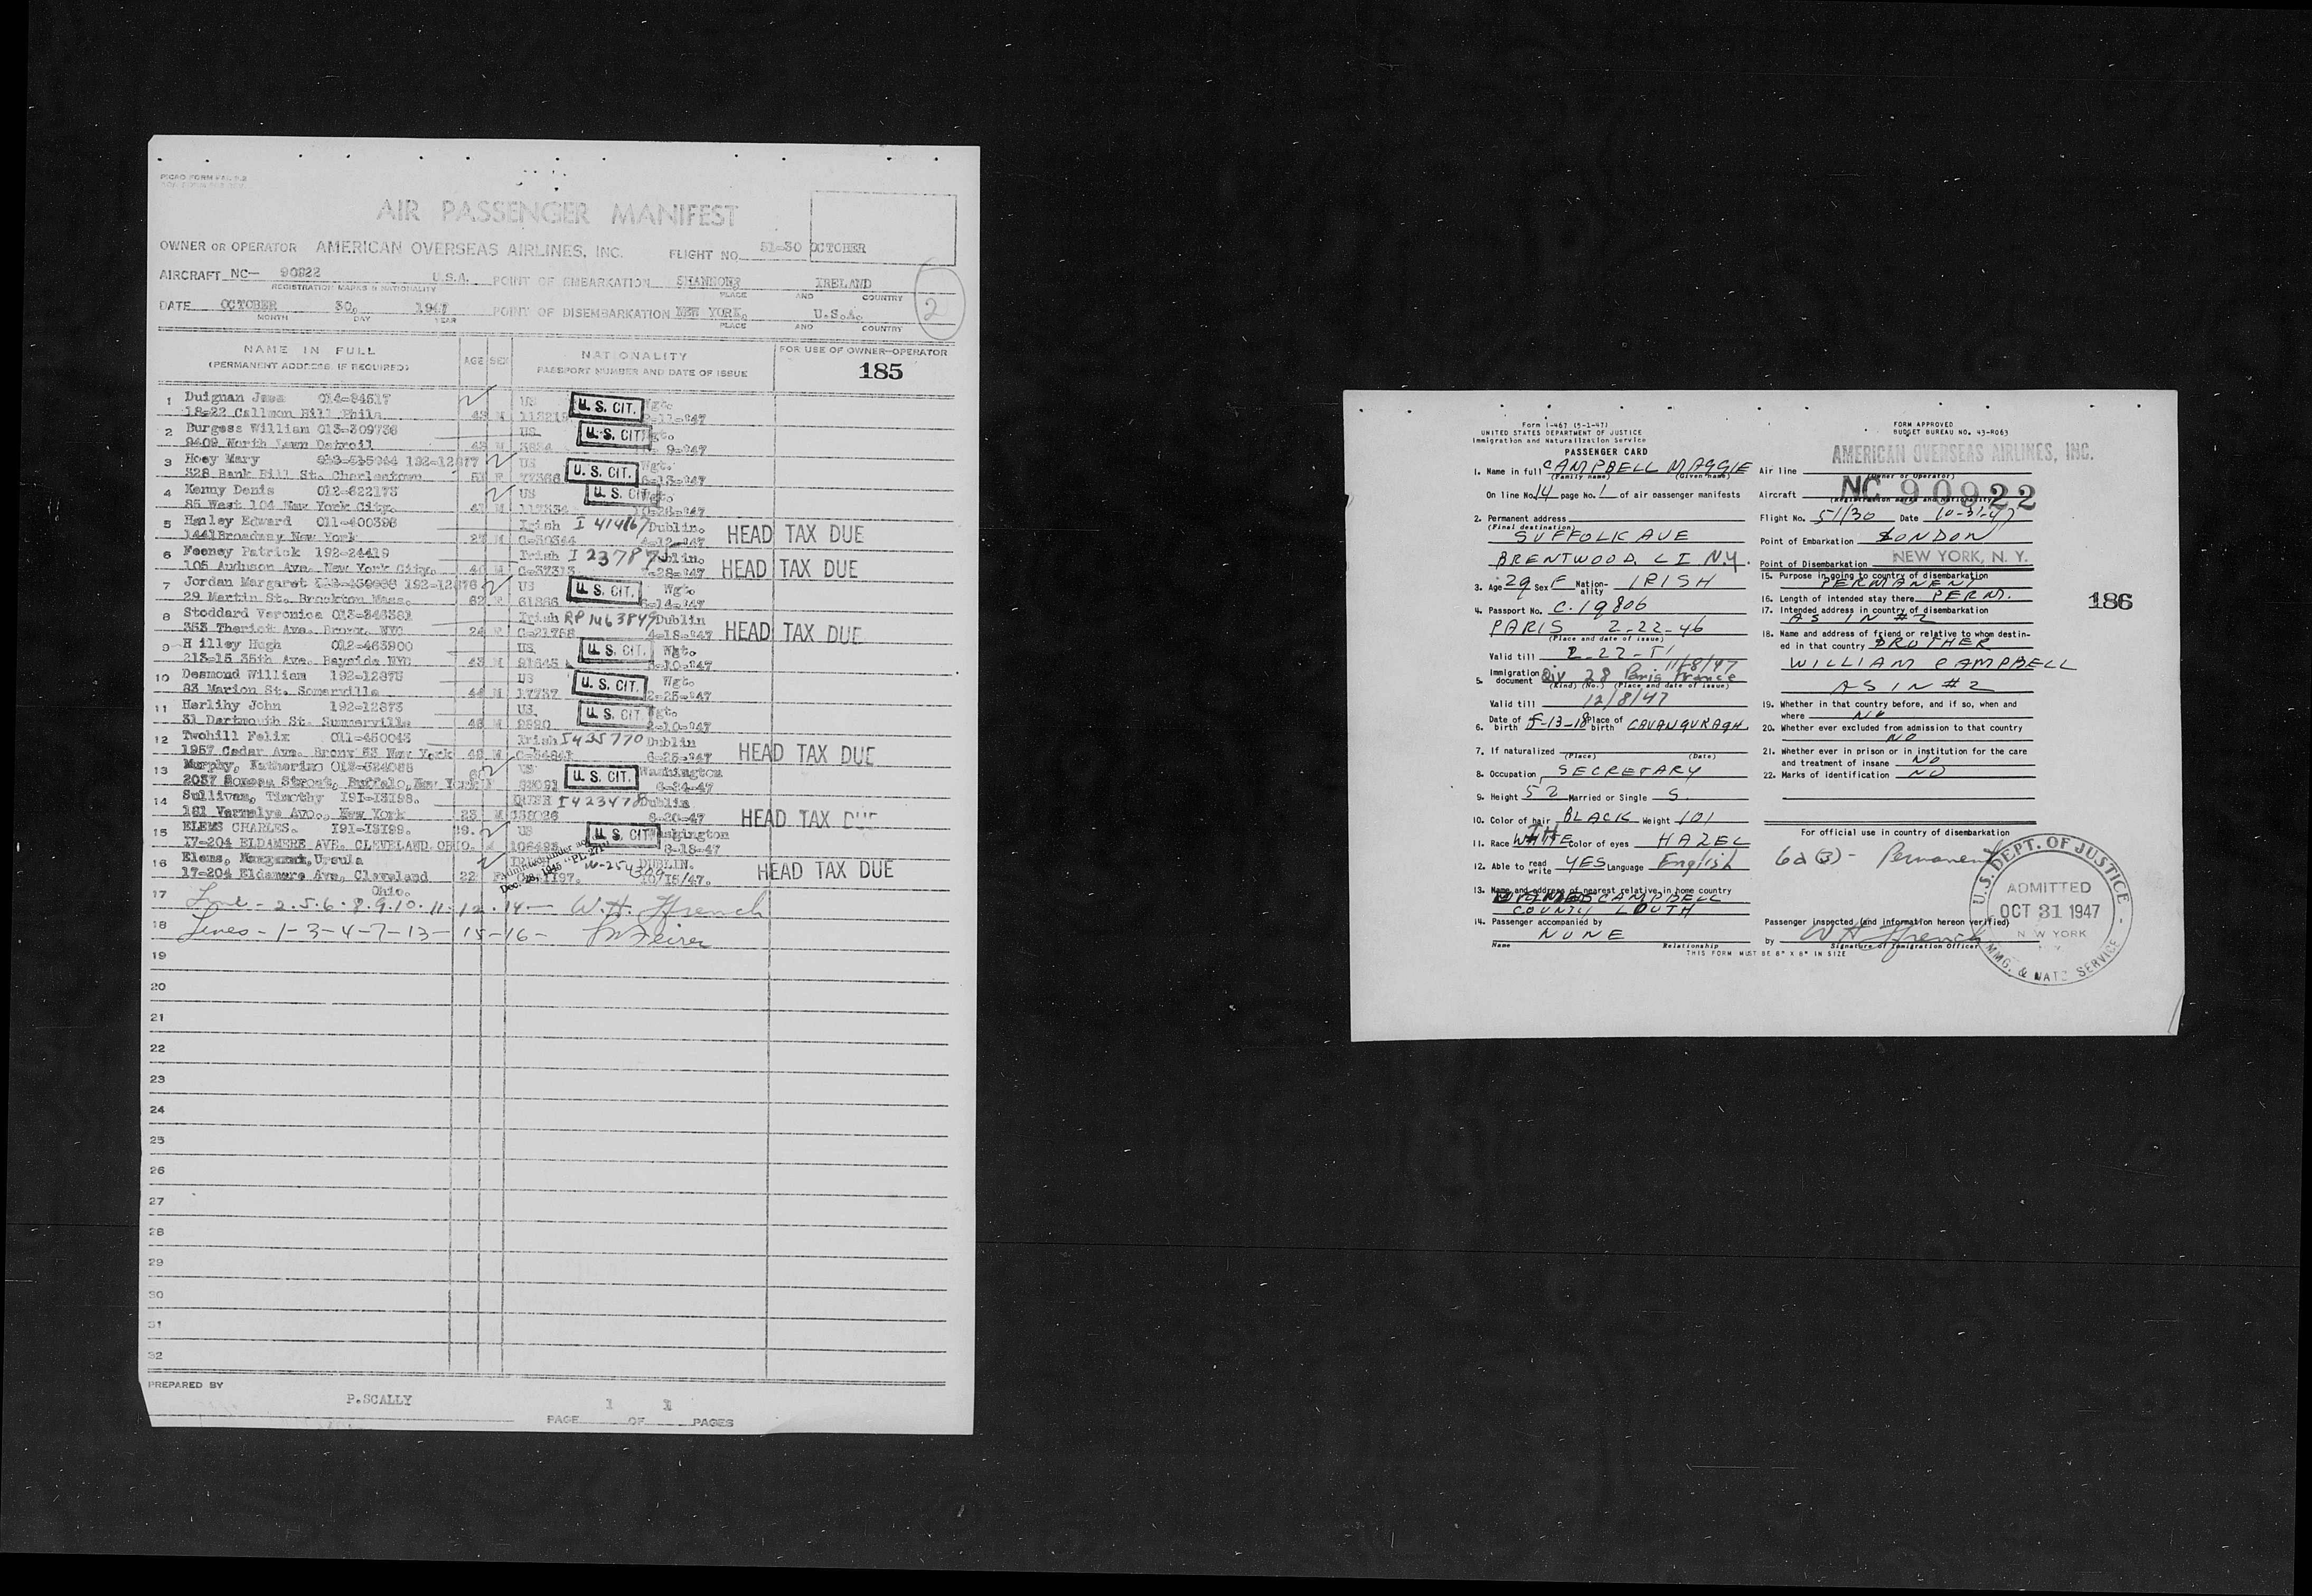 AIR PASSENGER MANIFEST
OWNER OR OPERATOR AMERICAN OVERSEAS AIRLINES, INC. FLIGHT NO. 51-30 OCTOBER
AIRCRAFT NC- 90922 U.S.A. POINT OF EMBARKATION SHANNON, IRELAND
REGISTRATION MARKS & NATIONALITY PLACE AND COUNTRY
2
DATE OCTOBER 30, 1947 POINT OF DISEMBARKATION NEW YORK, U.S.A.
MONTH DAY YEAR PLACE AND COUNTRY
NAME IN FULL AGE SEX NATIONALITY FOR USE OF OWNER-OPERATOR
(PERMANENT ADDRESS, IF REQUIRED) PASSPORT NUMBER AND DATE OF ISSUE 185
1 Duignan 014-84517 US U. S. CIT. Wgt.
18-22 Callmon Hill Phila 43 M -11-'47
2 Burgess William 013-309736 US U. S. CIT. Wgt.
9409 North Lawn Detroil 43 M 9-'47
3 Hoey Mary 192-12877 US U. S. CIT. Wgt.
328 Bank Hill St. Charlestown 51 F -13-'47
4 Kenny Denis 012-822173 US U. S. CIT. Wgt.
85 West 104 New York City. M
5 Henley Edward 011-400398 Irish I 414167 Dublin. HEAD TAX DUE
1441Broadway New York 27 M C-30344 4-12-'47
6 Feeney Patrick 192-24419 Irish I 23787 Dublin. HEAD TAX DUE
105 Auduson Ave. New York City. M C-37373 -28-'47
7 Jordan Margaret 192-12876 US U. S. CIT. Wgt.
29 Martin St. Brockton Mass. 62 F 61866 -14-'47
8 Stoddard Veronica 013-346381 Irish RP 1463849 Dublin HEAD TAX DUE
353 Theriot Ave. Bronx. NYC 24 F C-21758 4-18-'47
9 H illey Hugh 012-463900 US U. S. CIT. Wgt.
213-15 35th Ave. Bayside NYC 43 M 91645 -10-'47
10 Desmond William 192-12875 US U. S. CIT. Wgt.
83 Marion St. Somerville 44 M 17737 2-25-'47
11 Herlihy John 192-12873 US. U. S. CIT. Wgt.
31 Dartmouth St. Summerville 46 M 9890 2-10-'47
12 Twohill Felix 011-450043 Irish 5435770 Dublin HEAD TAX DUE
1957 Cedar Ave. Bronx 53 New York 46 M 6-25-'47
13 Murphy, Katherine 013-524088 US U. S. CIT. Washington
2037 Seneca Street, Buffalo, New York F 6-24-47
14 Sullivan, Timothy I91-I3198. I423478 Dublin HEAD TAX DUE
181 Vermelye Ave., New York 23 M 8-20-47
15 ELEMS CHARLES. I91-I3199. 29. US U. S. CIT. Washington
17-204 ELDAMERE AVE. CLEVELAND OHIO. 106493 8-18-47
16 Elems, Ursula DUBLIN. HEAD TAX DUE
17-204 Eldamere Ave, Cleveland 22 F 10/15/47.
Admitted under act Dec. 28, 1945 "PL 271"
Ohio.
17 Line - 2.5.6.8.9.10.11.12.14- W. H. Ffrench
18 Lines - 1-3-4-7-13-15-16-
19
20
21
22
23
24
25
26
27
28
29
30
31
32
PREPARED BY
P.SCALLY 1 1
PAGE OF PAGES
Form I-467 (5-1-47)
UNITED STATES DEPARTMENT OF JUSTICE
Immigration and Naturalization Service
PASSENGER CARD
1. Name in full CAMPBELL MAGGIE
(Family name) (Given name)
On line No. 14 page No. 1 of air passenger manifests
2. Permanent address
(Final destination)
SUFFOLK AVE
BRENTWOOD, L I N.Y.
3. Age 29 Sex F Nationality IRISH
4. Passport No. C.19806
PARIS 2-22-46
(Place and date of issue)
Valid till 2-22-51
5. Immigration document Qiv 28 Paris France 11/8/47
(Kind) (No.) (Place and date of issue)
Valid till 12/8/47
6. Date of birth 5-13-18 Place of birth CAVANGURAGH
7. If naturalized
(Place) (Date)
8. Occupation SECRETARY
9. Height 52 Married or Single S.
10. Color of hair BLACK Weight 101
11. Race WHITE Color of eyes HAZEL
12. Able to read write YES Language English
13. Name and address of nearest relative in home country
CAMPBELL
COUNTY LOUTH
14. Passenger accompanied by
NONE
Name Relationship
THIS FORM MUST BE 8" X 8" IN SIZE
FORM APPROVED
BUDGET BUREAU NO. 43-R063
Air line AMERICAN OVERSEAS AIRLINES, INC.
(Owner or Operator)
Aircraft NC 90922
(Registration marks and nationality)
Flight No. 51/30 Date 10-31-47
Point of Embarkation LONDON
Point of Disembarkation NEW YORK, N. Y.
15. Purpose in going to country of disembarkation
PERMANENT
16. Length of intended stay there PERM.
17. Intended address in country of disembarkation
AS IN #2
18. Name and address of friend or relative to whom destined in that country BROTHER
WILLIAM CAMPBELL
AS IN #2
19. Whether in that country before, and if so, when and
where NO
20. Whether ever excluded from admission to that country
NO
21. Whether ever in prison or in institution for the care
and treatment of insane NO
22. Marks of identification NO
For official use in country of disembarkation
6a(3) - Permanent
Passenger inspected (and information hereon verified)
by W H Ffrench
Signature of Immigration Officer
U.S. DEPT. OF JUSTICE
ADMITTED
OCT 31 1947
NEW YORK
N.Y.
IMMG. & NATZ SERVICE
186